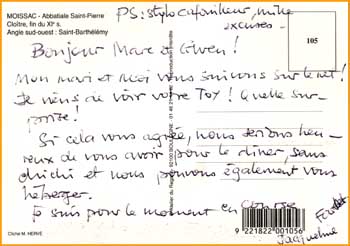 MOISSAC - Abbatiale Saint-Pierre
Cloître, fin du XIᵉ s.
Angle sud-ouest : Saint-Barthélémy
PS: stylo cafouilleur, mille
excuses-
105
Bonjour Marc et Gwen!
Mon mari et moi vous suivons sur le net!
Je viens de voir votre Toy! Quelle sur-
prise!
Si cela vous agrée, nous serions heu-
reux de vous avoir pour le dîner, sans
chichi et nous pouvons également vous
héberger.
Je suis pour le moment en
Jacqueline
Cliché M. HERVÉ
9 221822 001056